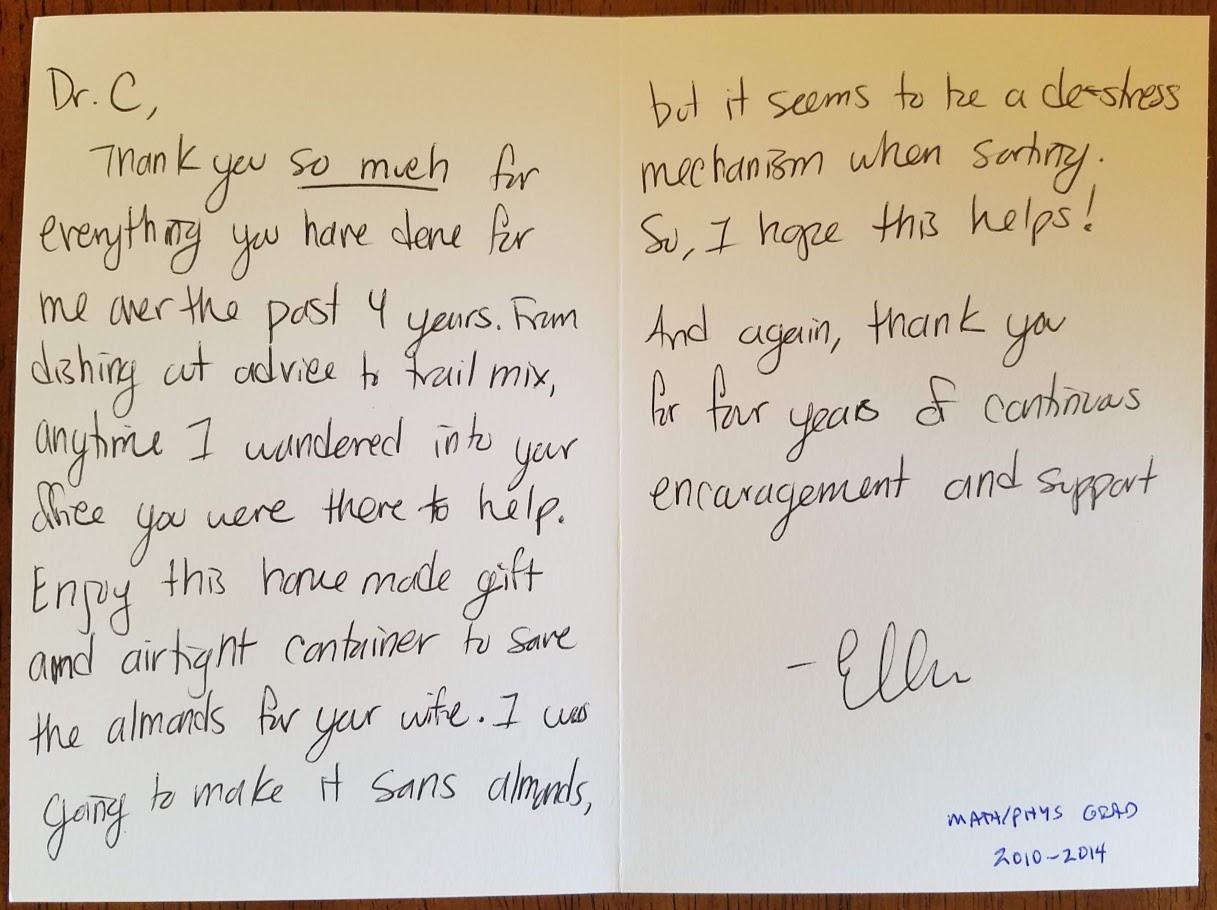 Dr. C,
Thank you so much for
everything you have done for
me over the past 4 years. From
dishing out advice to trail mix,
anytime I wandered into your
office you were there to help.
Enjoy this home made gift
and airtight container to save
the almonds for your wife. I was
going to make it sans almonds,
but it seems to be a de-stress
mechanism when sorting.
So, I hope this helps!
And again, thank you
for four years of continuous
encouragement and support
- Ellen
MATH/PHYS GRAD
2010-2014